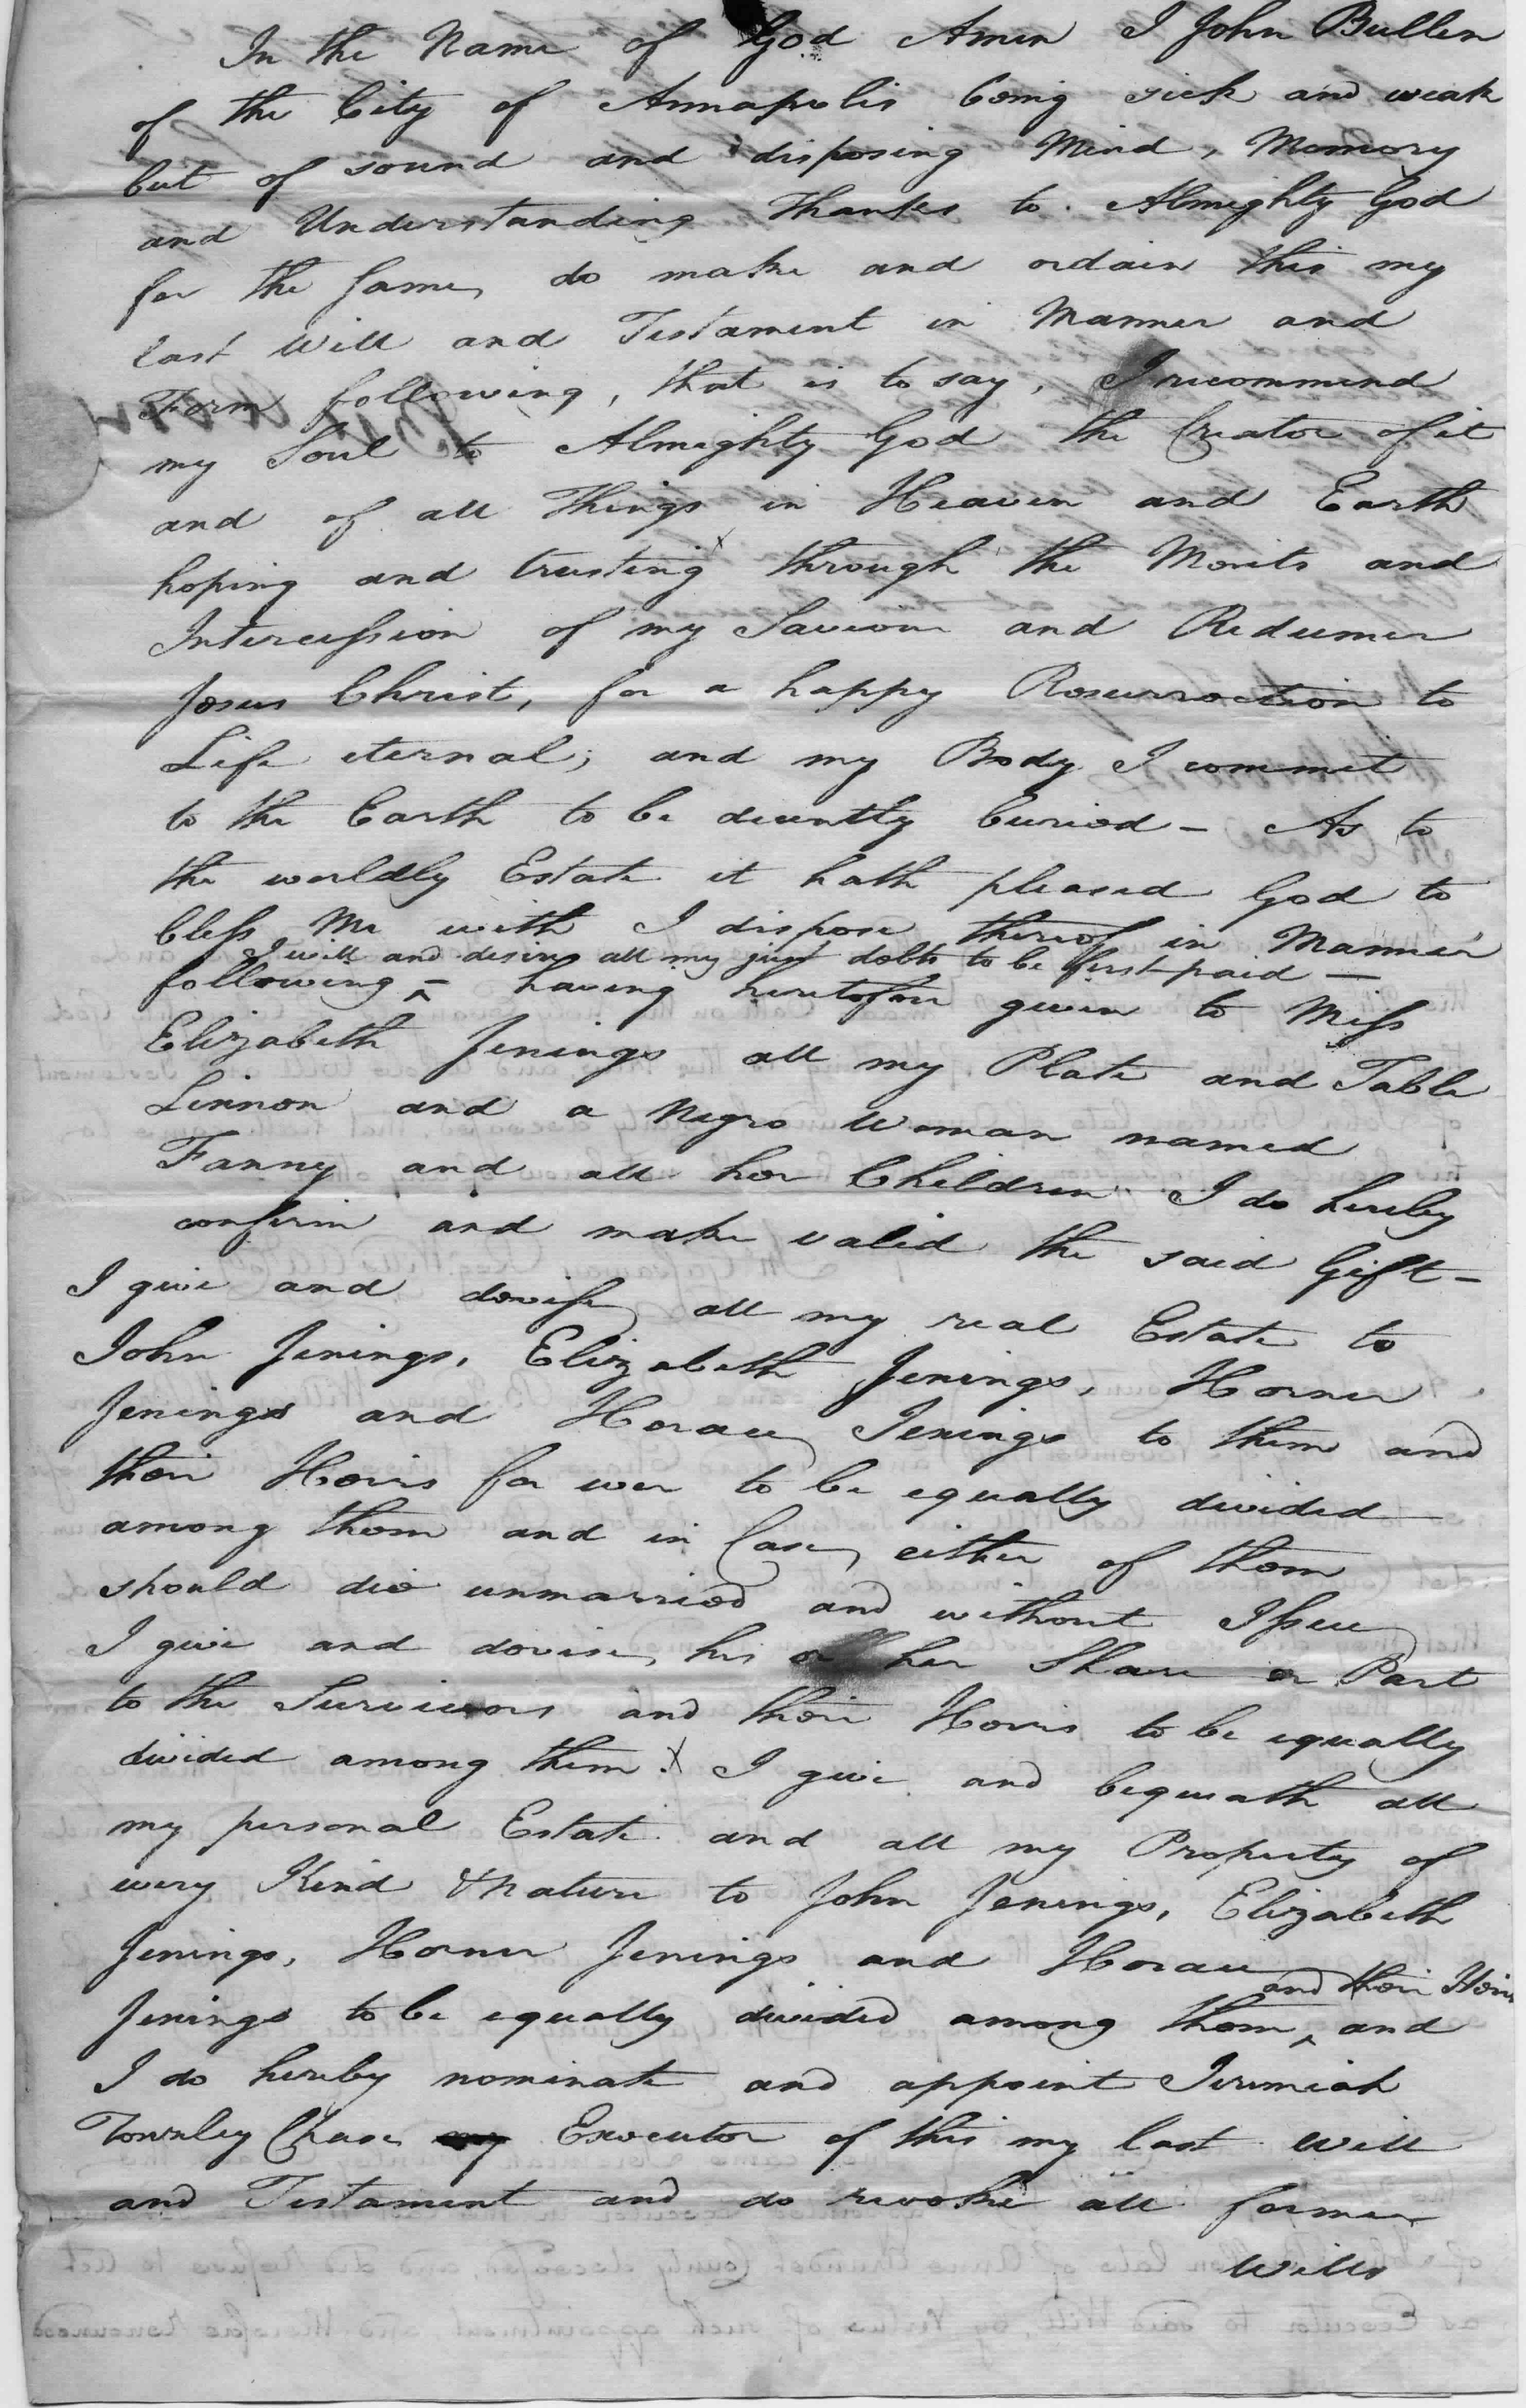 In the Name of God Amen I John Bullen
of the City of Annapolis being sick and weak
but of sound and disposing Mind, Memory
and Understanding thankes to Almighty God
for the same, do make and ordain this my
last Will and Testament in Manner and
Form following, that is to say, I recommend
my Soul to Almighty God the Creator of it
and of all Things in Heaven and Earth
hoping and trusting through the Merits and
Intercession of my Saviour and Redeemer
Jesus Christ, for a happy Resurrection to
Life eternal; and my Body I commit
to the Earth to be decently buried - As to
the worldly Estate it hath pleased God to
bless Me with I dispose thereof in Manner
I will and desire all my just debts to be first paid -
following - ^ having heretofore given to Miss
Elizabeth Jenings all my Plate and Table
Linnon and a Negro Woman named
Fanny and all her Children I do hereby
confirm and make valid the said Gift -
I give and devise all my real Estate to
John Jenings, Elizabeth Jenings, Horner
Jenings and Horace Jenings to them and
their Heirs for ever to be equally divided
among them and in Case either of them
should die unmarried and without Issue
I give and devise, his or her Share or Part
to the Survivors and their Heirs to be equally
divided among them. X I give and bequeath all
my personal Estate and all my Property of
every Kind & Nature to John Jenings, Elizabeth
Jenings, Horner Jenings and Horace
and their Heirs
Jenings to be equally divided among them ^ and
I do hereby nominate and appoint Jeremiah
Townley Chase my Executor of this my last Will
and Testament and do revoke all former
Wills